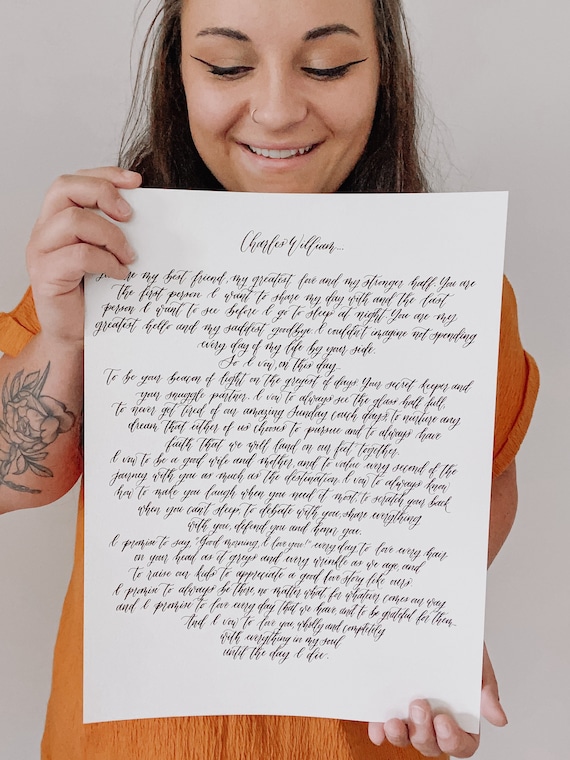 Charles William...
You are my best friend, my greatest love and my stronger half. You are
the first person I want to share my day with and the last
person I want to see before I go to sleep at night. You are my
greatest hello and my saddest goodbye. I couldn't imagine not spending
every day of my life by your side.
So I vow, on this day
To be your beacon of light on the greyest of days. Your secret keeper and
your snuggle partner. I vow to always see the glass half full,
to never get tired of our amazing Sunday couch days, to nurture any
dream that either of us choses to pursue and to always have
faith that we will land on our feet together.
I vow to be a good wife and mother, and to value every second of the
journey with you as much as the destination. I vow to always know
how to make you laugh when you need it most, to scratch your back
when you can't sleep, to debate with you, share everything
with you, defend you and honor you.
I promise to say, "Good morning, I love you!" everyday, to love every hair
on your head as it greys and every wrinkle as we age, and
to raise our kids to appreciate a good love story like ours.
I promise to always be there no matter what for whatever comes our way
and I promise to love every day that we have and to be grateful for them.
And I vow to love you wholly and completely
with everything in my soul
until the day I die.